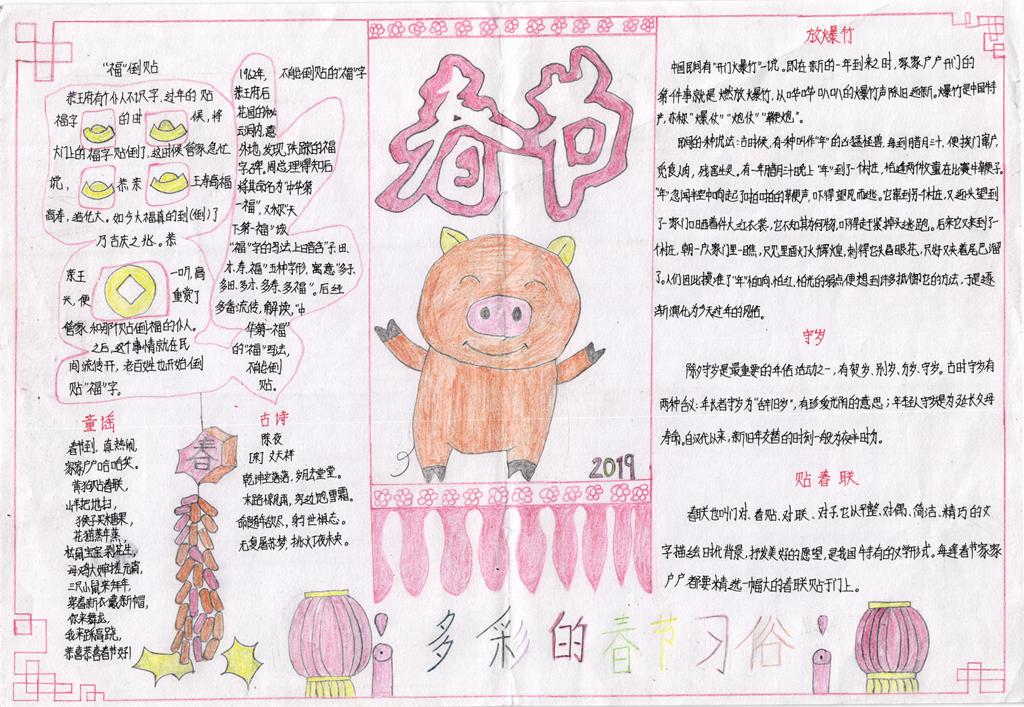 "福"倒贴
恭王府有个仆人不识字,过年的贴
福字 的时 候,将
大门上的福字贴倒了,这时候管家急忙
说, 恭亲 王寿高福
高寿,造化大。如今大福真的到(倒)了
乃吉庆之兆。恭
亲王 一听,高
兴,便 重赏了
管家和那个贴倒福的仆人。
之后,这个事情就在民
间流传开,老百姓也开始倒
贴"福"字。
不能倒贴的"福"字
1962年,
恭王府后
花园的秘
云洞内,意
外地,发现,失踪的福
字碑。周总理得知后
将其命名为"中华第
一福",又称"天
下第一福"该
"福"字的写法上暗含"子、田、
才、寿、福"五种字形,寓意"多子
多田、多才、多寿、多福"。后经
多番流传,解读,"中
华第一福"
的"福"写法,
不能倒
贴。
童谣
春节到,真热闹,
家家户户哈哈笑。
黄狗贴春联,
山羊把地扫,
猴子买糖果,
花猫蒸年蒸,
松鼠宝宝剥花生,
母鸡大婶搓元宵,
三只小鼠来拜年,
穿着新衣戴新帽,
你来舞龙,
我来踩高跷,
恭喜恭喜春节好!
古诗
除夜
[宋]文天祥
乾坤空落落,岁月去堂堂。
末路惊风雨,穷边饱雪霜。
命随年欲尽,身与世俱忘。
无复屠苏梦,挑灯夜未央。
春
春节
2019
多彩的春节习俗
放爆竹
中国民间有"开门爆竹"一说。即在新的一年到来之时,家家户户开门的
第一件事就是燃放爆竹,从哔哔叭叭的爆竹声除旧迎新。爆竹是中国特
产,亦称"爆仗""炮仗""鞭炮"。
民间的种说法:古时候,有一种叫作"年"的凶猛怪兽,每到腊月三十,便挨门窜户,
觅食人肉,残害生灵。有一年腊月三十晚上"年"到了一个村庄,恰逢两个牧童在比赛牛鞭子。
"年"忽闻半空中响起了啪啪的鞭声,吓得望风而逃。它窜到另一个村庄,又迎头望到
了一家门口晒着件大红衣裳,它不知其为何物,吓得赶紧掉头逃跑。后来它又来到了一个
村庄,朝一户人家门里一瞧,只见里面灯火辉煌,刺得它头昏眼花,只好又夹着尾巴溜
了。人们因此摸准了"年"怕响,怕红,怕光的弱点,便想到许多抵御它的方法,于是逐
渐演化为今天过年的风俗。
守岁
除夕守岁是最重要的年俗活动之一,有熬岁、别岁、分岁、守岁。古时守岁有
两种含义:年长者守岁为"辞旧岁",有珍爱光阴的意思;年轻人守岁是为延长父母
寿命。自汉代以来,新旧年交替的时刻一般为夜半时分。
贴春联
春联也叫门对、春贴、对联、对子,它以平整、对偶、简洁、精巧的文
字描绘时代背景,抒发美好的愿望,是我国特有的文学形式。每逢春节家家
户户都要精选一幅大的春联贴于门上。